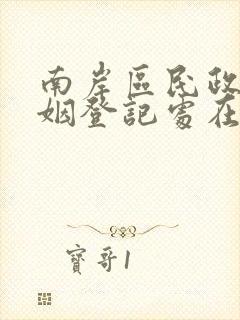 南岸區民政
姻登記處在
寶哥1